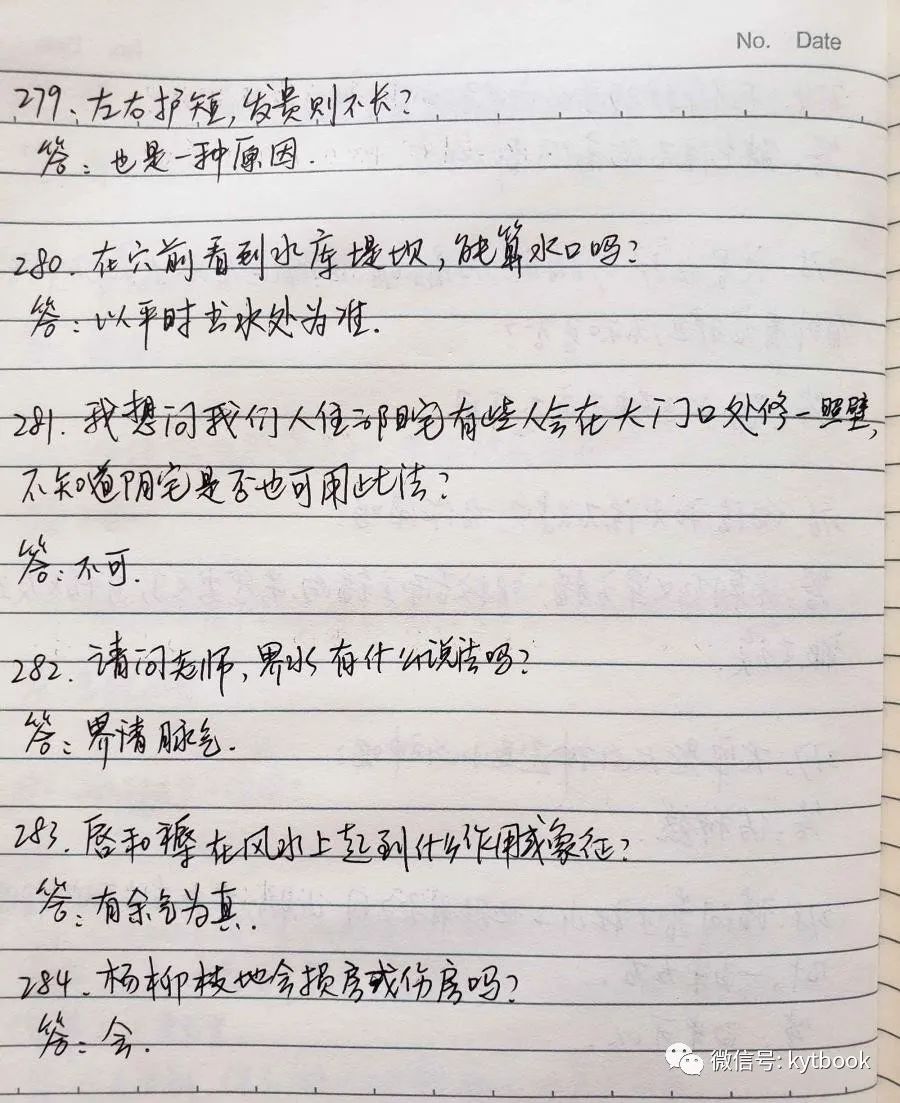 No. Date
279、左右护短,发贵则不长?
答:也是一种原因.
280.在穴前看到水库堤坝,能算水口吗?
答:以平时出水处为准.
281.我想问我们人住阳宅有些人会在大门口处修一照壁,
不知道阴宅是否也可用此法?
答:不可.
282.请问老师,界水有什么说法吗?
答:界清脉气.
283.唇和褥在风水上起到什么作用或象征?
答:有余气为真.
284.杨柳枝地会损房或伤房吗?
答:会.
微信号: kytbook